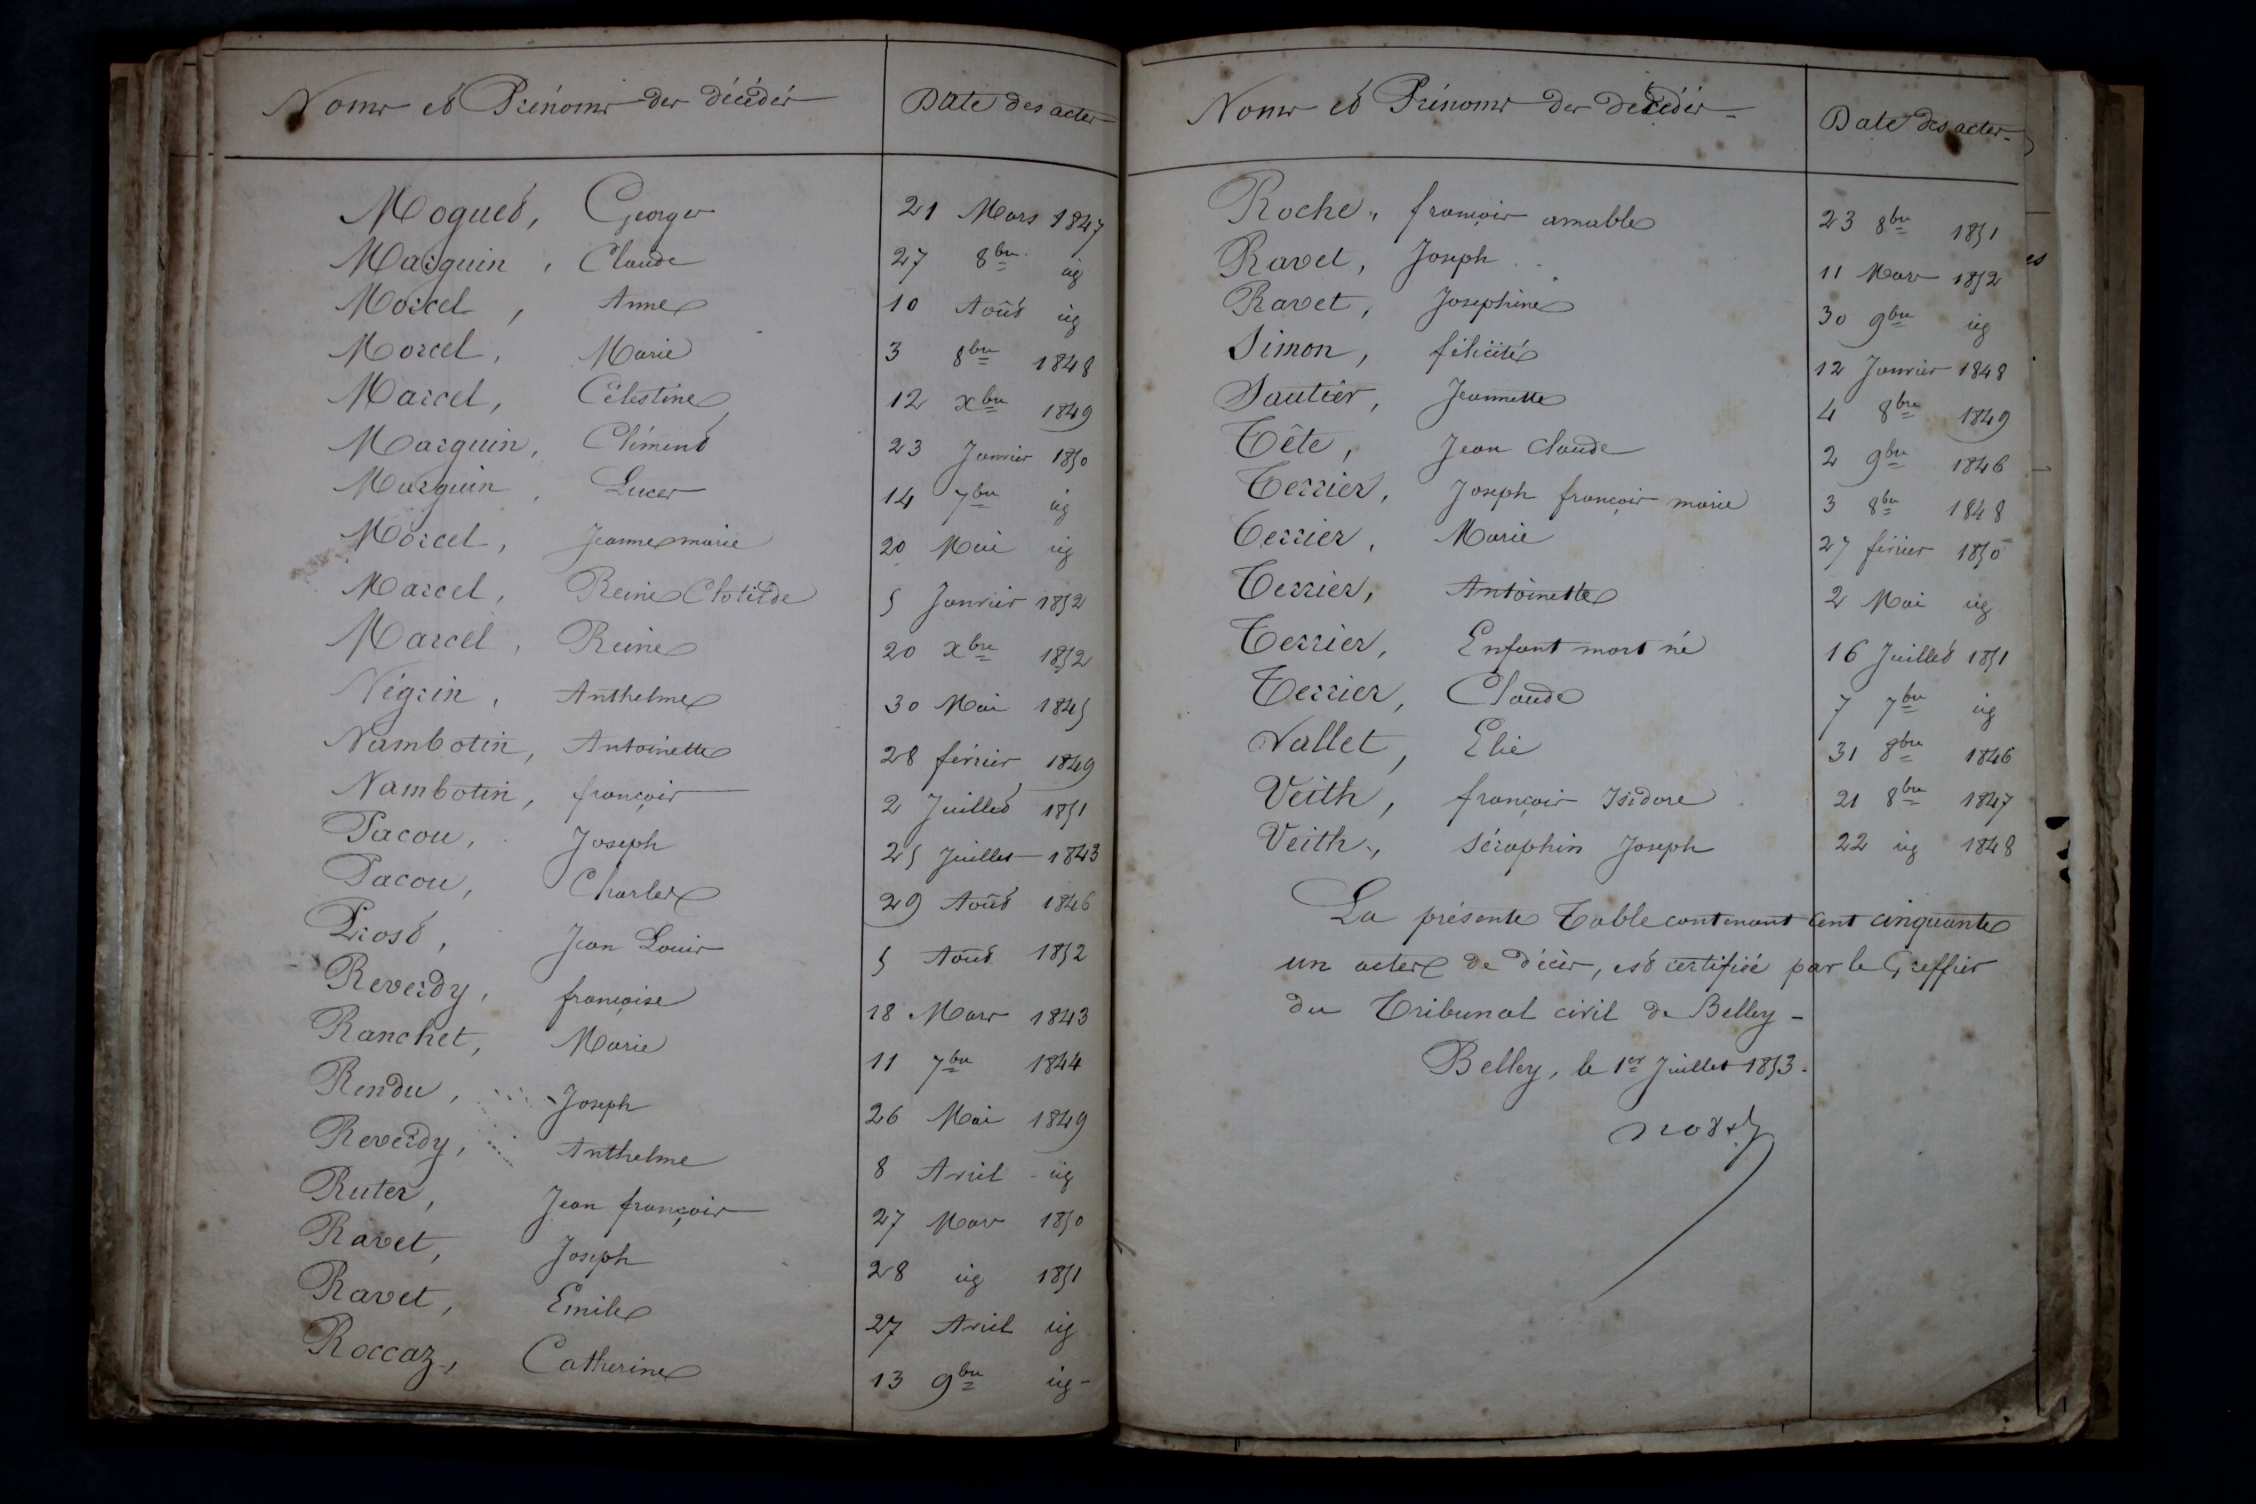 Noms et Prénoms des décédés Date des actes
Moguet, Georges 21 Mars 1847
Marguin, Claude 27 8bre ig
Morcel, Anne 10 Août ig
Morcel, Marie 3 8bre 1848
Marcel, Célestine 12 Xbre 1849
Marguin, Clément 23 Janvier 1850
Marguin, Luces 14 7bre ig
Morcel, Jeanne marie 20 Mai ig
Marcel, Reine Clotilde 5 Janvier 1852
Marcel, Reine 20 Xbre 1852
Négrin, Anthelme 30 Mai 1845
Nambotin, Antoinette 28 février 1849
Nambotin, françois 2 Juillet 1851
Pacou, Joseph 25 Juillet 1843
Pacou, Charles 29 Août 1846
Prost, Jean Louis 5 Août 1852
Reverdy, françoise 18 Mars 1843
Ranchet, Marie 11 7bre 1844
Rendu, Joseph 26 Mai 1849
Reverdy, Anthelme 8 Avril ig
Ruter, Jean françois 27 Mars 1850
Ravet, Joseph 28 ig 1851
Ravet, Emile 27 Avril ig
Roccaz, Catherine 13 9bre ig
Noms et Prénoms des décédés Date des actes
Roche, françois amable 23 8bre 1851
Ravet, Joseph 11 Mars 1852
Ravet, Josephine 30 9bre ig
Simon, félicité 12 Janvier 1848
Sautier, Jeannette 4 8bre 1849
Tête, Jean Claude 2 9bre 1846
Terrier, Joseph françois marie 3 8bre 1848
Terrier, Marie 27 février 1850
Terrier, Antoinette 2 Mai ig
Terrier, Enfant mort né 16 Juillet 1851
Terrier, Claude 7 7bre ig
Vallet, Elie 31 8bre 1846
Veith, françois Isidore 21 8bre 1847
Veith, Séraphin Joseph 22 ig 1848
La présente Table contenant cent cinquante
un actes de décès, est certifiée par le Greffier
du Tribunal civil de Belley -
Belley, le 1er Juillet 1853.